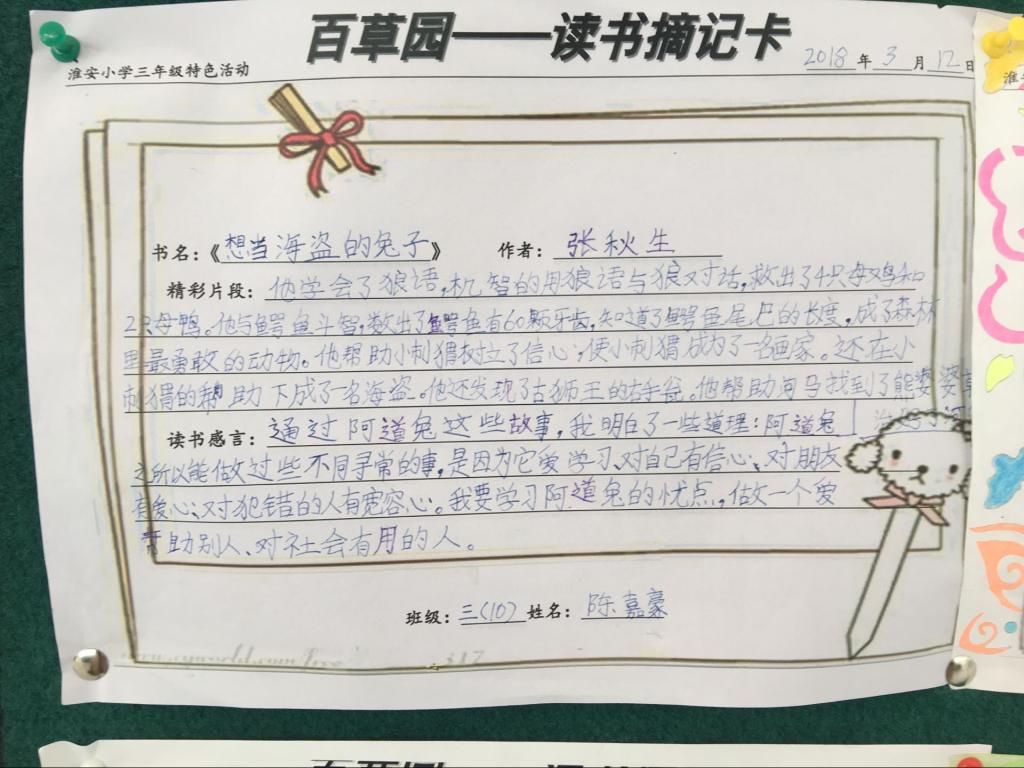 百草园——读书摘记卡
淮安小学三年级特色活动
2018年3月12日
书名：《想当海盗的兔子》 作者：张秋生
精彩片段：他学会了狼语，机智的用狼语与狼对话，救出了4只母鸡和
2只母鸭。他与鳄鱼斗智，数出了鳄鱼有60颗牙齿，知道了鳄鱼尾巴的长度，成了森林
里最勇敢的动物。他帮助小刺猬树立了信心，使小刺猬成为了一名画家。还在小
刺猬的帮助下成了一名海盗。他还发现了古狮王的右手谷。他帮助河马找到了熊婆婆
读书感言：通过阿道兔这些故事，我明白了一些道理：阿道兔
之所以能做过些不同寻常的事，是因为它爱学习、对自己有信心、对朋友
有爱心、对犯错的人有宽容心。我要学习阿道兔的忧点，做一个爱
帮助别人、对社会有用的人。
班级：三（10） 姓名：陈嘉豪